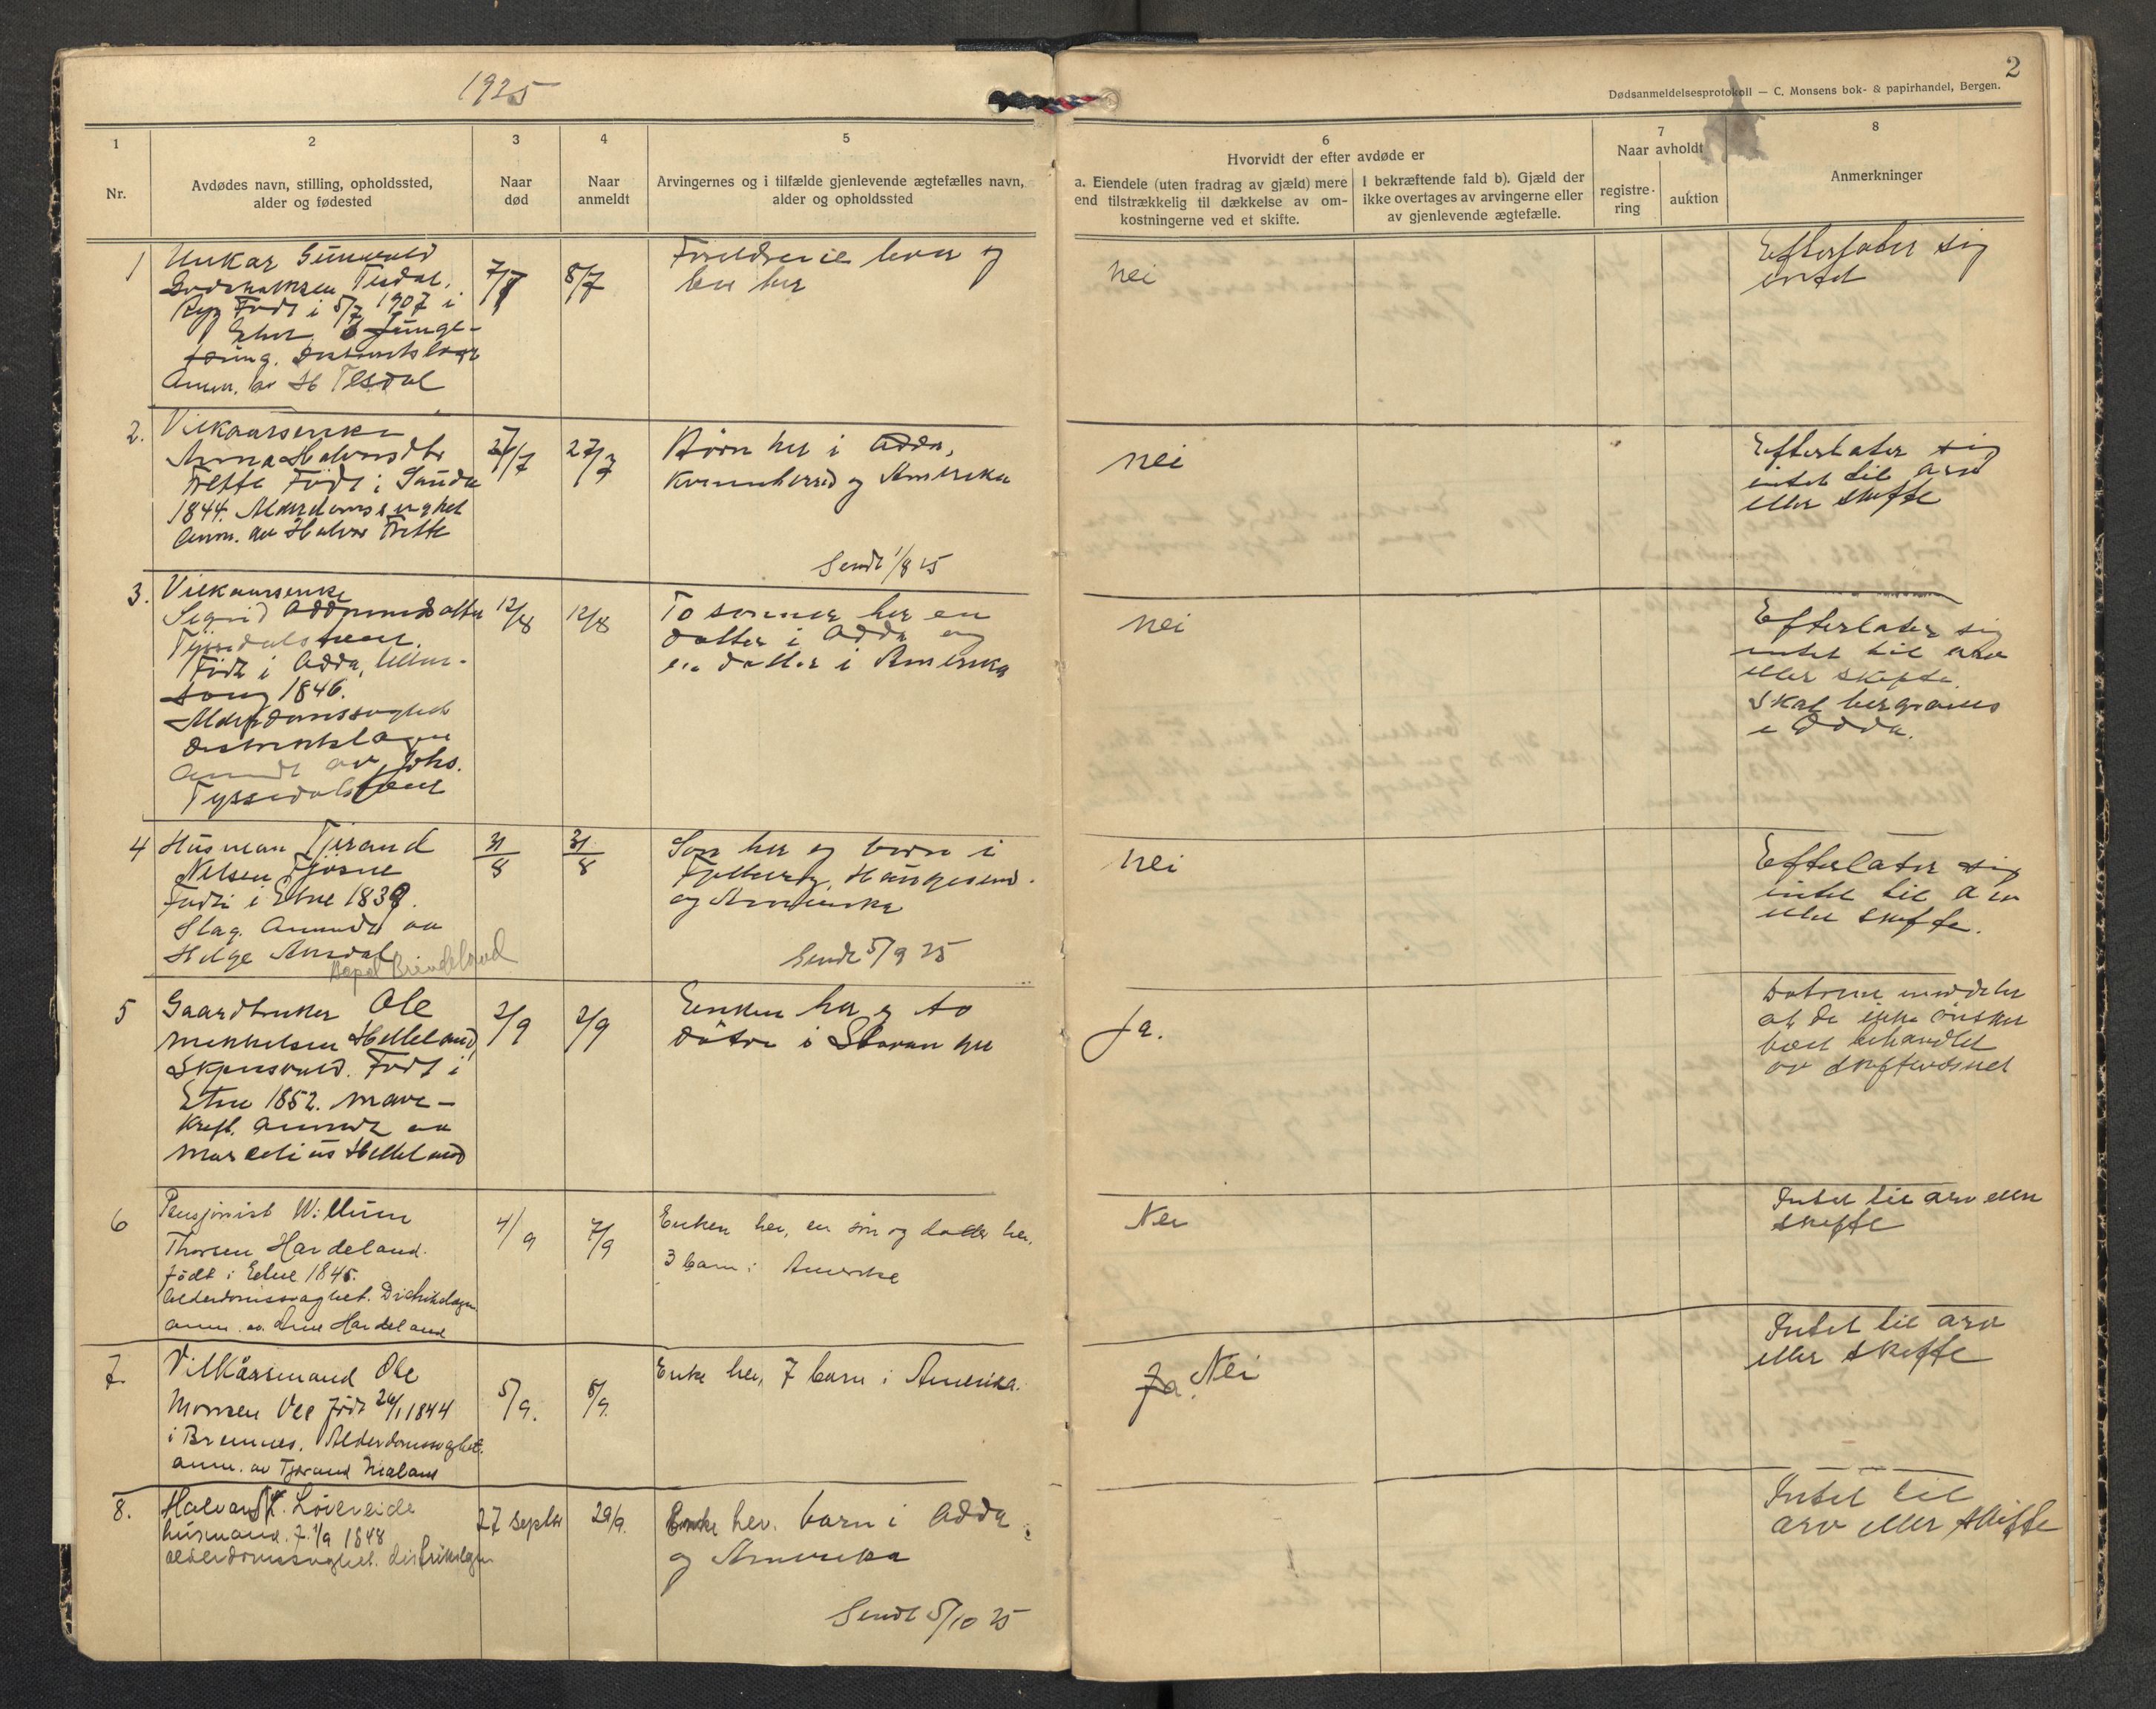 1925
2
Dødsanmeldelsesprotokoll — C. Monsens bok- & papirhandel, Bergen.
1
Nr.
2
Avdødes navn, stilling, opholdssted,
alder og fødested
3
Naar
død
4
Naar
anmeldt
5
Arvingernes og i tilfælde gjenlevende ægtefælles navn,
alder og opholdssted
6
Hvorvidt der efter avdøde er
a. Eiendele (uten fradrag av gjæld) mere
end tilstrækkelig til dækkelse av om-
kostningerne ved et skifte.
I bekræftende fald b). Gjæld der
ikke overtages av arvingerne eller
av gjenlevende ægtefælle.
7
Naar avholdt
registre-
ring
auktion
8
Anmerkninger
1
Tesdal,
Født i 5/7 1907 i
Anm. av H Tesdal
7/7
8/7
Foreldrene lever og
bor her
nei
Efterlater sig
intet
2.
Vilkaarsenke
Anna Halvorsdtr
Frette Født i Sauda
1844. Alderdomssvaghet
Anm. av Halvor Frette
27/7
27/7
Børn her i Odda,
Kvinnherred og Amerika
Sendt 1/8 25
nei
Efterlater sig
intet til arv
eller skifte
3.
Vilkaarsenke
Sigrid Oddmundsdatter
Tyssedalstveit.
Født i Odda,
1846.
Alderdomssvaghed
Distriktslægen
Anmdt av Johs.
Tyssedalstveit
12/8
12/8
To sønner her en
datter i Odda og
en datter i Amerika
nei
Efterlater sig
intet til arv
eller skifte.
Skal begraves
i Odda.
4
Husman Tjerand
Nilsen Tjösne
Født i Etne 1839.
Slag. Anmeldt av
Helge
31/8
31/8
Søn her og børn i
Fjelberg, Haugesund.
og Amerika
Sendt 5/9 25
nei
Efterlater sig
intet til arv
eller skifte.
5
Gaardbruker Ole
Mikkelsen Helleland,
Skjensvold. Født i
Etne 1852. Mave-
kræft. Anmeldt av
Marselius Helleland
2/9
2/9
Enken her og to
døtre i Stavanger
Ja.
Døtrene meddeler
at de ikke ønsker
boet behandlet
av skiftevæsnet
6
Pensjonist Willum
Thorsen Hardeland.
født i Etne 1845.
Alderdomssvaghet. Distriktslægen
anm. av Arne Hardeland
4/9
7/9
Enken her, en søn og datter her,
3 barn i Amerika
Nei
Intet til arv eller
skifte
7.
Vilkårsmand Ole
Monsen Vee født 26/1 1844
i Bremnes. Alderdomssvaghet.
anm. av Tjerand
5/9.
5/9.
Enke her, 7 barn i Amerika.
Ja. Nei
Intet til arv
eller skifte
8.
Halvor H. Løvereide
husmand. f. 1/9 1848
alderdomssvaghet. distriktslægen
27 septbr
29/9.
Enke her. barn i Odda
og Amerika
Sendt 5/10 25
Intet til
arv eller skifte